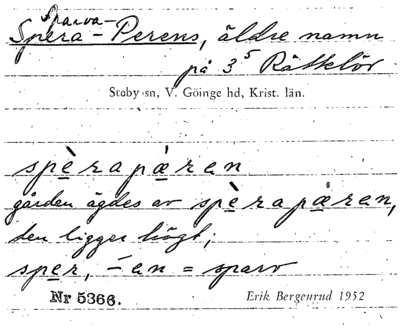 Sparva-
Spera-Perens, äldre namn
på 3⁵ Råttelöv
Stoby sn, V. Göinge hd, Krist. län.
spèrapæ̀ren
gården ägdes av spèrapæ̀ren,
den ligger högt;
sper, -en = sparv
Nr 5366. Erik Bergenrud 1952